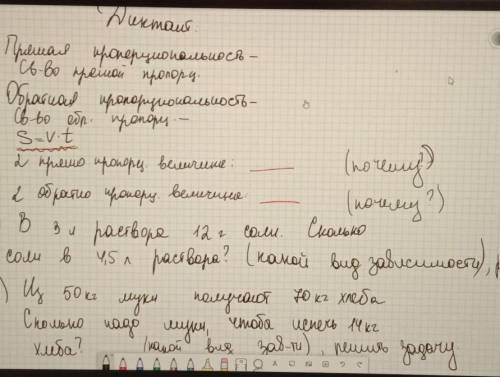 Диктант.
Прямая пропорциональность –
Св-во прямой пропорц.
Обратная пропорциональность –
Св-во обр. пропорц. –
S=v·t
2 прямо пропорц. величины: ____ (почему?)
2 обратно пропорц. величины: ____ (почему?)
В 3 л раствора 12 г соли. Сколько
соли в 4,5 л раствора? (какой вид зависимости), р
) Из 50кг муки получают 70 кг хлеба
Сколько надо муки, чтобы испечь 14кг
хлеба? (какой вид зав-ти), решить задачу